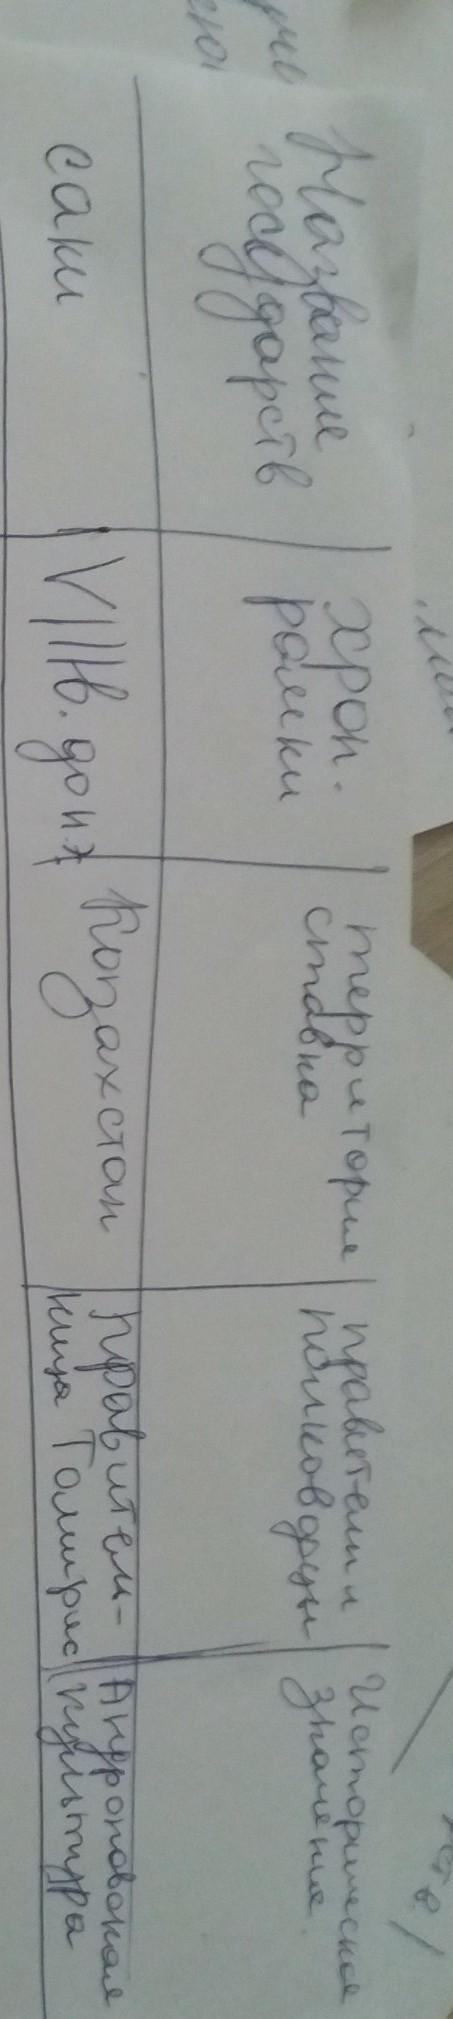 Название
государств
хрон.
рамки
территория
ставка
правители
полководцы
Историческое
значение
саки
VIIIв. до н.э
Казахстан
правитель-
ница Томирис
Андроновская
культура